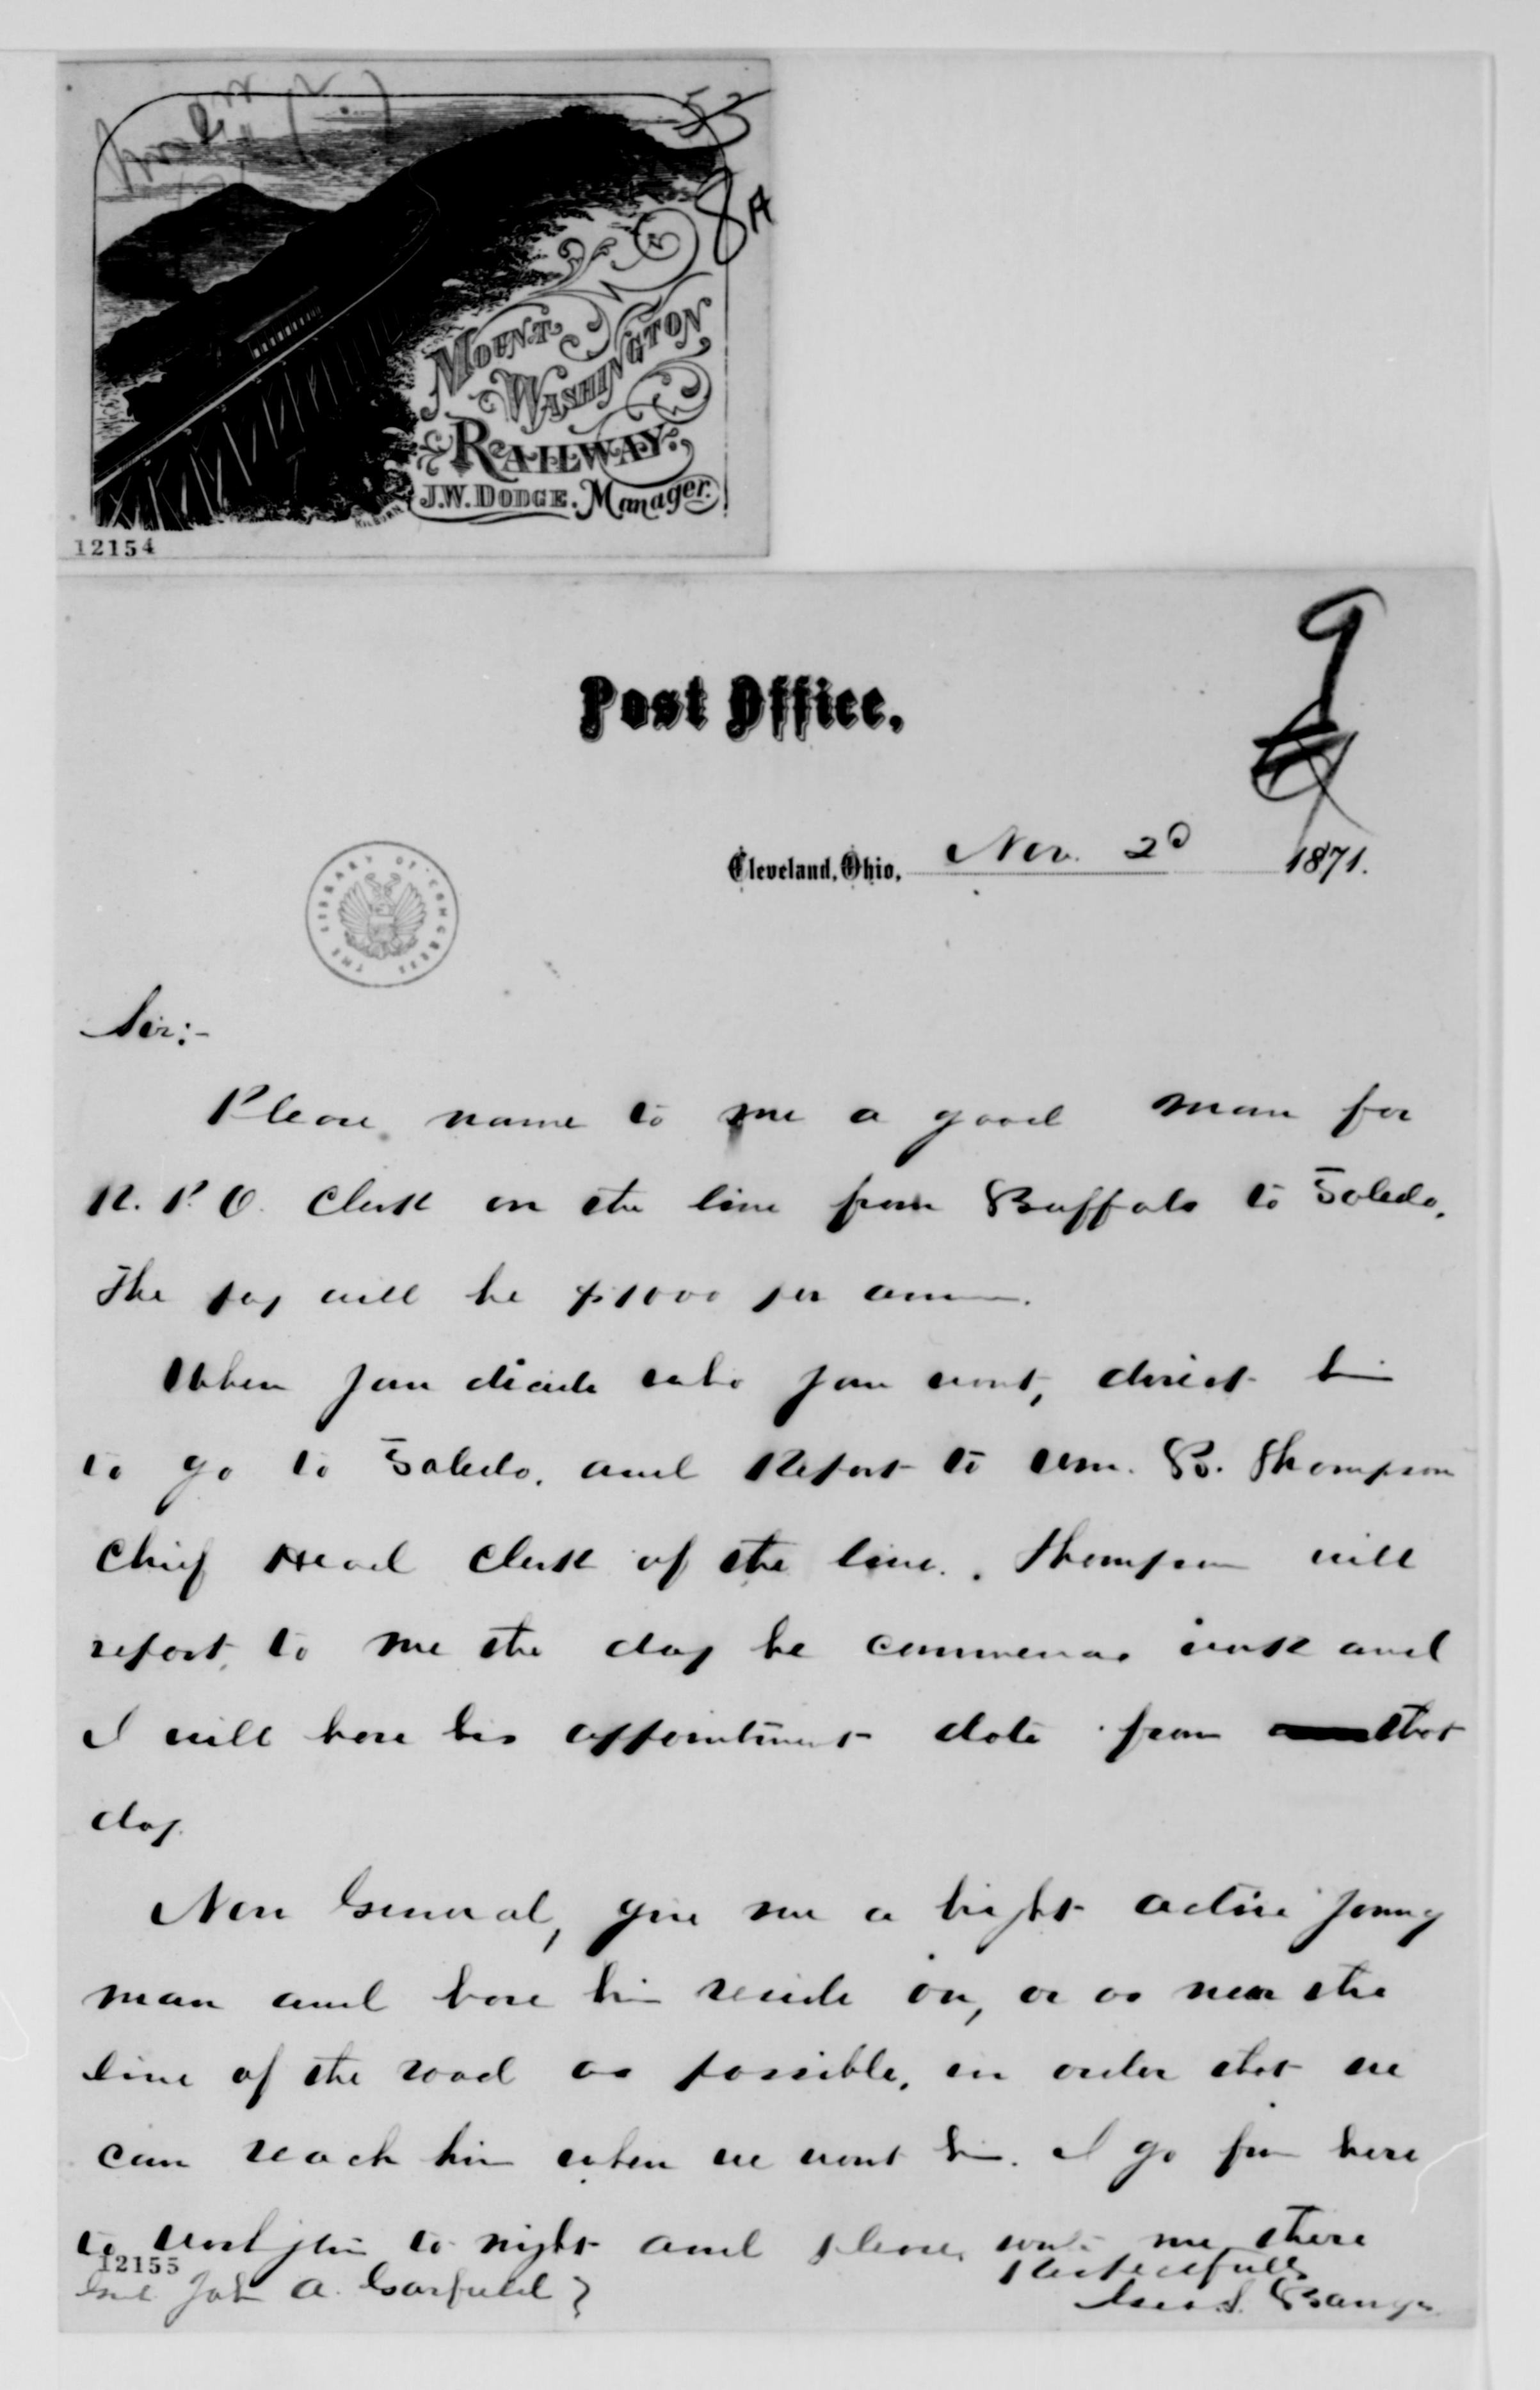 53
8A
MOUNT
WASHINGTON
RAILWAY.
J.W. DODGE. Manager.
12154
9
Post Office,
Cleveland, Ohio, Nov. 2d 1871.
THE LIBRARY OF CONGRESS
Sir:-
Please name to me a good man for
R. P. O. Clerk on the line from Buffalo to Toledo.
The pay will be $1000 per annum.
When you decide who you want, direct him
to go to Toledo, and Report to Wm. B. Thompson
Chief Head Clerk of the line. Thompson will
report to me the day he commences work and
I will have his appointment date from that
day.
Now General, give me a bright active young
man and have him reside on, or as near the
line of the road as possible, in order that we
can reach him when we want him. I go from here
to Washington to night and please write me there
Respectfully
12155
Genl A. Garfield }
Geo. S. Bangs